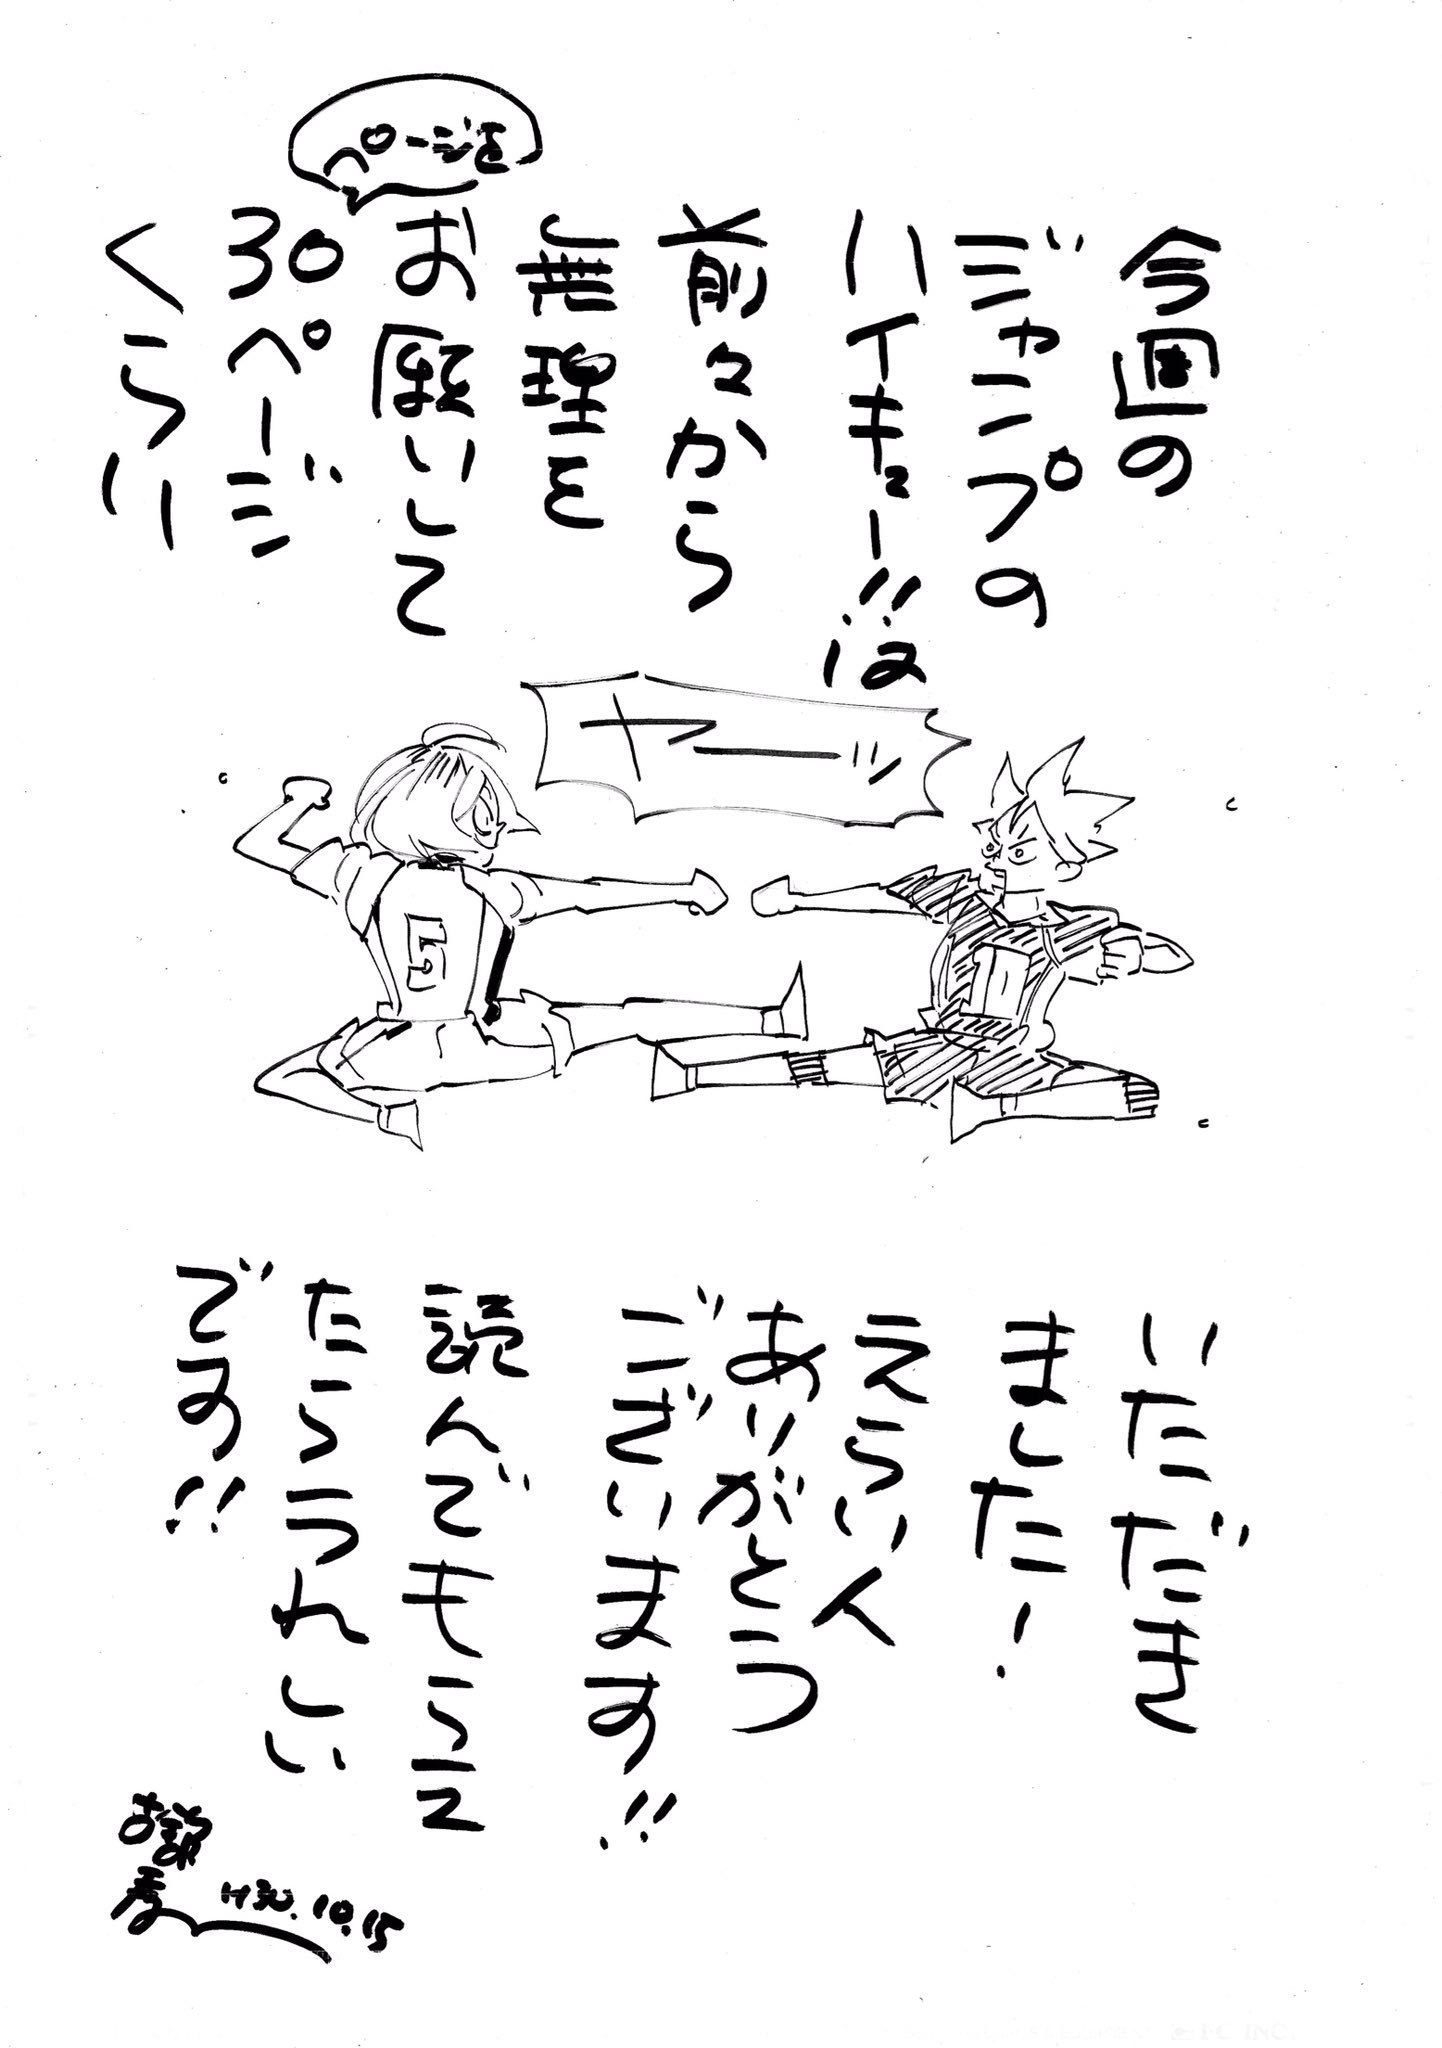 今週の
ジャンプの
ハイキュー!!は
前々から
無理を
お願いして
ページを
30ページ
くらい
ヤーッ
5
いただき
ました!
えらい人
ありがとう
ございます!!
読んでもらえ
たらうれしい
です!!
古舘
春一
H30.10.15